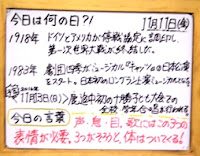 今日は何の日?!
11月11日(金)
1918年 ドイツとアメリカが停戦協定に調印し、
第一次世界大戦が終結した。
1983年 劇団四季がミュージカル『キャッツ』の日本公演
をスタート。日本初のロングラン上演ミュージカルとなる。
11月3日(日)
今日の言葉 声・息・目、歌にはこの3つの
表情が必要。3つがそろうと、体はついてくる!